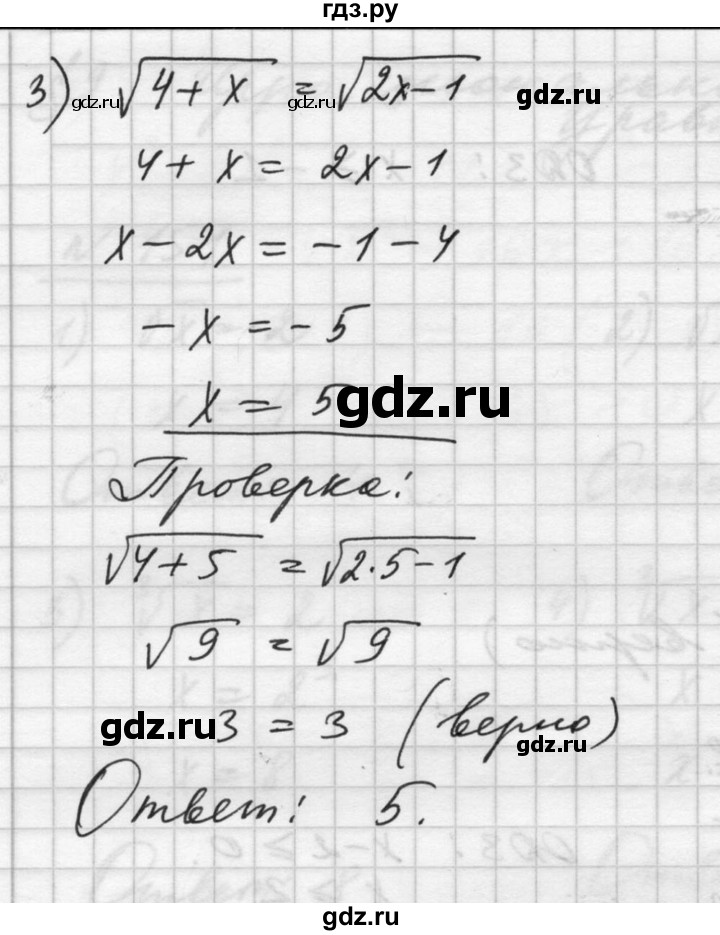 гдз.ру
3) √(4 + x) = √(2x − 1)
gdz.ru gdz.ru gdz.ru
4 + x = 2x − 1
x − 2x = −1 − 4
− x = − 5
x = 5
gdz.ru
Проверка:
√(4 + 5) = √(2·5 − 1)
√9 = √9
gdz.ru
3 = 3 (верно)
gdz.ru
Ответ: 5.
gdz.ru